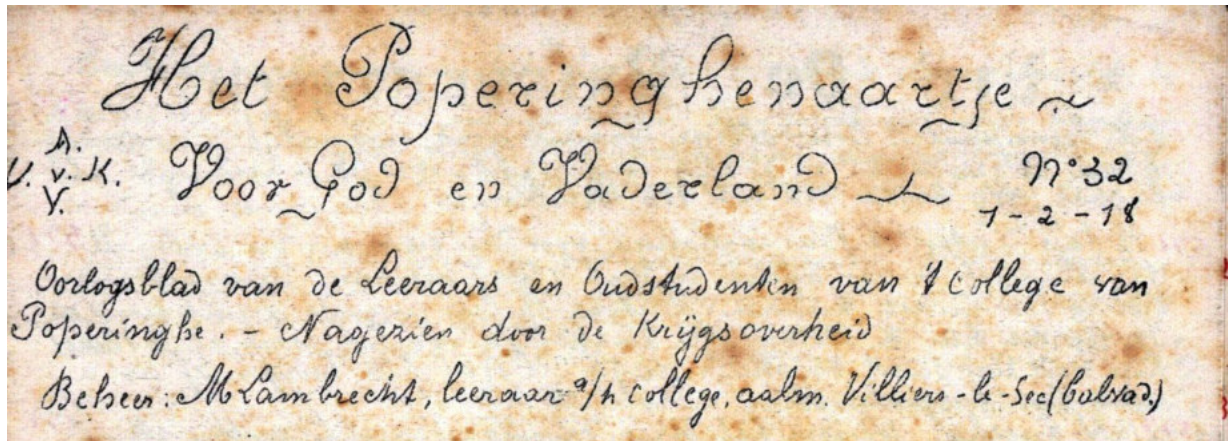 Het Poperinghenaartje
A.
V. v. K. Voor God en Vaderland N° 32
V. 1-2-18
Oorlogsblad van de Leeraars en Oudstudenten van 't College van
Poperinghe. - Nagezien door de Krijgsoverheid
Beheer: M Lambrecht, leeraar a/h College, aalm. Villiers-le-Sec (Calvad.)